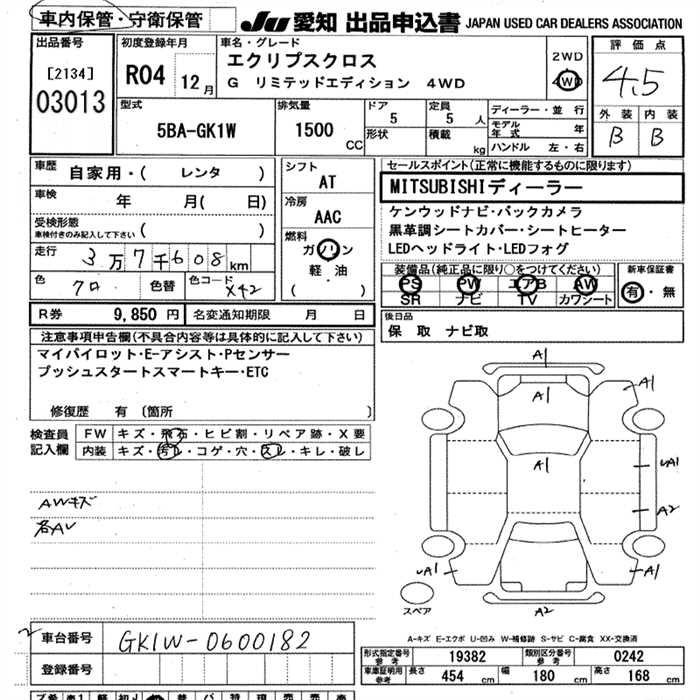 車内保管・守衛保管
JU 愛知 出品申込書 JAPAN USED CAR DEALERS ASSOCIATION
出品番号
[2134]
03013
初度登録年月
R04 12月
車名・グレード
エクリプスクロス
G リミテッドエディション 4WD
2WD
4WD
評価点
4.5
外装 内装
B B
型式
5BA-GK1W
排気量
1500 CC
ドア
5
形状
定員
5人
積載
kg
ディーラー・並行
モデル年式 年
ハンドル 左・右
車歴
自家用・( レンタ )
車検
年 月( 日)
受検形態
車検付きのみ記入して下さい ( )
走行
3万7千608km
色
クロ
色替
色コード
X42
シフト
AT
冷房
AAC
燃料
ガソリン
軽・油
( )
セールスポイント(正常に機能するものに限ります)
MITSUBISHIディーラー
ケンウッドナビ・バックカメラ
黒革調シートカバー・シートヒーター
LEDヘッドライト・LEDフォグ
装備品(純正品に限り○をつけてください)
PS PW エアB AW
SR ナビ TV カワシート
新車保証書
有・無
R券 9,850円 名変通知期限 月 日
後日品
保 取 ナビ取
注意事項申告欄(不具合内容等は具体的に記入して下さい)
マイパイロット・E-アシスト・Pセンサー
プッシュスタートスマートキー・ETC
修復歴 有 [箇所 ]
検査員記入欄
FW キズ・飛石・ヒビ割・リペア跡・X要
内装 キズ・汚レ・コゲ・穴・スレ・キレ・破レ
AWキズ
各AU
A1
A1
A1
A1
UA1
A2
UA1
A1
A2
スペア
A-キズ E-エクボ U-凹み W-補修跡 S-サビ C-腐食 XX-交換済
車台番号
GK1W-0600182
登録番号
形式指定番号 参考 19382 類別区分番号 参考 0242
車庫証明用 参考 長さ 454cm 幅 180cm 高さ 168cm